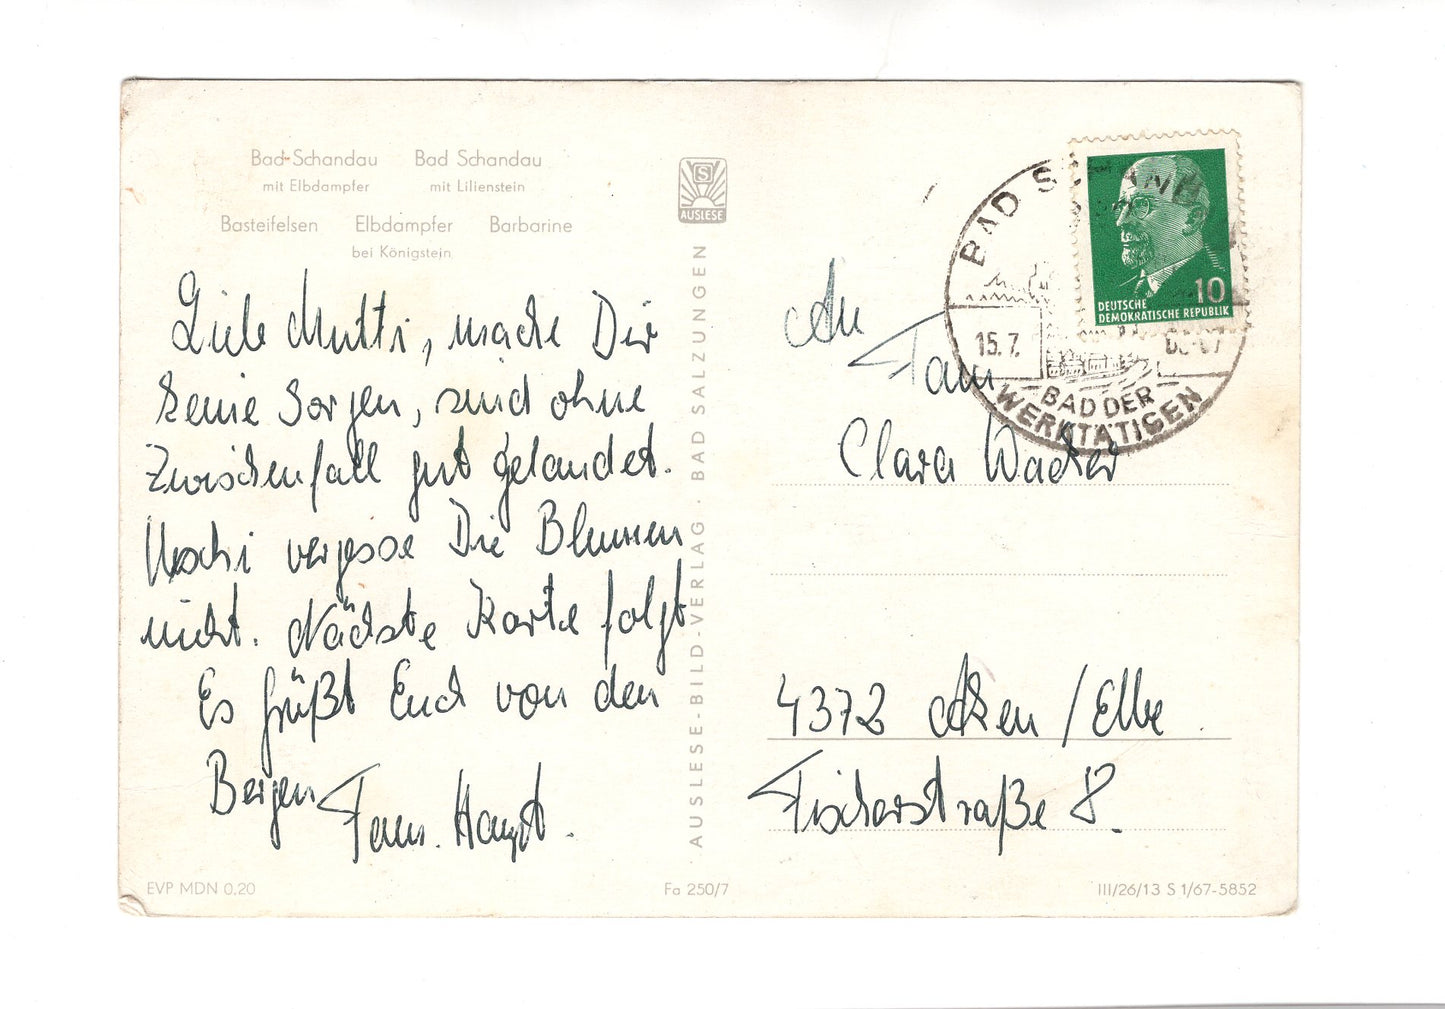 Bad Schandau
mit Elbdampfer
Bad Schandau
mit Lilienstein
Basteifelsen
Elbdampfer
bei Königstein
Barbarine
Liebe Mutti, mache Dir
keine Sorgen, sind ohne
Zwischenfall gut gelandet.
vergesse Die Blumen
nicht. Nächste Karte folgt
Es grüßt Euch von den
Bergen Fam. Haupt.
AUSLESE
AUSLESE-BILD-VERLAG · BAD SALZUNGEN
An
Fam
Clara Wacker
4372 Aken / Elbe
Fischerstraße 8.
BAD SCHANDAU
15.7.
BAD DER
WERKTÄTIGEN
10
DEUTSCHE
DEMOKRATISCHE REPUBLIK
EVP MDN 0.20
Fa 250/7
III/26/13 S 1/67-5852